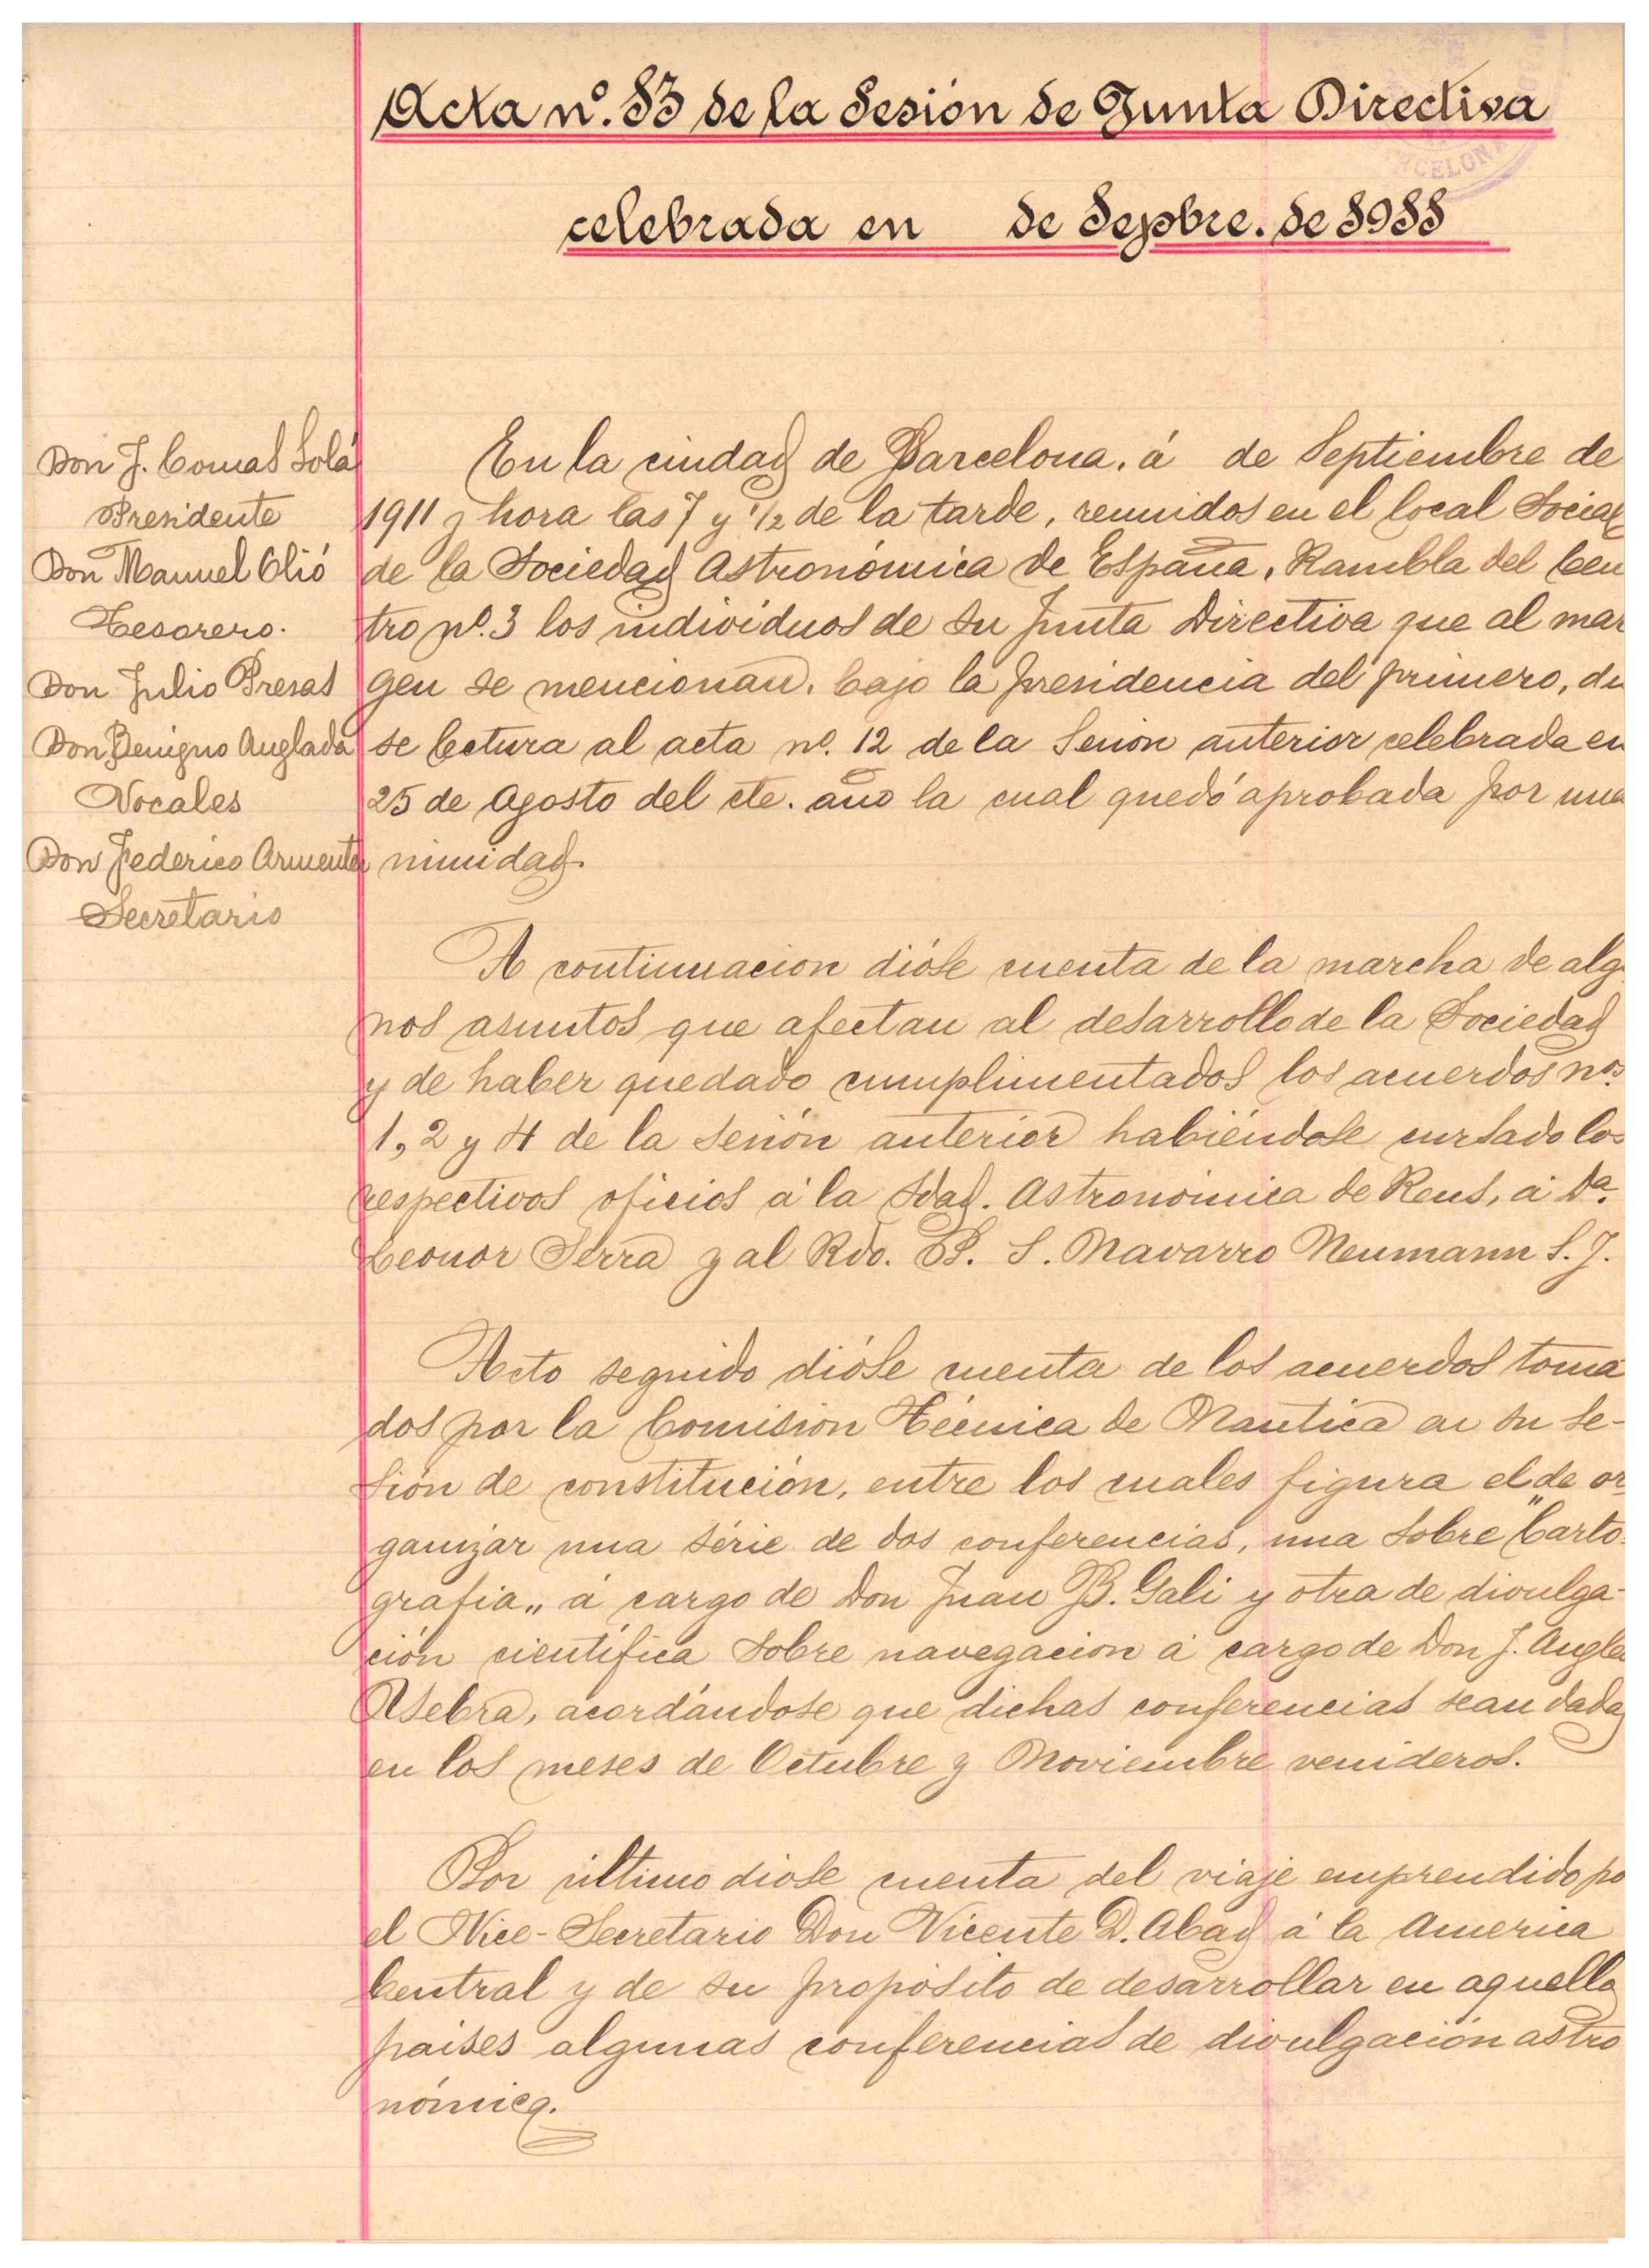 Acta nº. 13 de la Sesión de Junta Directiva
celebrada en de Sepbre. de 1911
Don J. Comas Solá
Presidente
Don Manuel Olió
Tesorero.
Don Julio Presas
Don Benigno Anglada
Vocales
Don Federico Armenter
Secretario
En la ciudad de Barcelona, á de Septiembre de
1911 y hora las 7 y 1/2 de la tarde, reunidos en el local Social
de la Sociedad Astronómica de España, Rambla del Cen
tro nº. 3 los individuos de su Junta Directiva que al mar
gen se mencionan, bajo la presidencia del primero, dió
se lectura al acta nº. 12 de la Sesión anterior celebrada en
25 de Agosto del cte. año la cual quedó aprobada por una
nimidad.
A continuación dióse cuenta de la marcha de algu
nos asuntos que afectan al desarrollo de la Sociedad
y de haber quedado cumplimentados los acuerdos nos.
1, 2 y 4 de la sesión anterior habiéndose cursado los
respectivos oficios á la Sdad. Astronómica de Reus, á Dª.
Leonor Serra y al Rdo. P. S. Navarro Neumann S. J.
Acto seguido dióse cuenta de los acuerdos toma
dos por la Comisión Técnica de Náutica en su se-
sión de constitución, entre los cuales figura el de or
ganizar una série de dos conferencias, una sobre "Carto-
grafia„ á cargo de Don Juan B. Gali y otra de divulga-
ción científica sobre navegación á cargo de Don J. Anglá
Asebra, acordándose que dichas conferencias sean dadas
en los meses de Octubre y Noviembre venideros.
Por último dióse cuenta del viaje emprendido po
el Vice-Secretario Don Vicente D. Abad á la America
Central y de su propósito de desarrollar en aquello
paises algunas conferencias de divulgación astro
nómica.